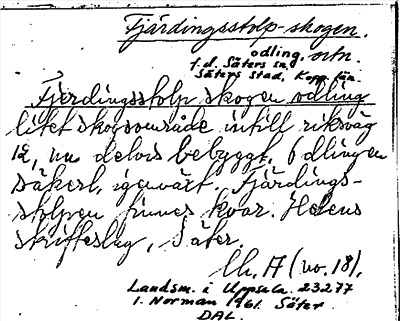 Fjärdingsstolp-skogen.
odling. ortn.
f.d. Säters sn
Säters stad, Kopp. län.
Fjärdingsstolpskogen odling
litet skogsområde intill riksväg
12, nu delvis bebyggt. Odlingen
säkerl. igenväxt. Fjärdings-
stolpen finnes kvar. Helens
skifteslag, Säter.
Ch. A (no. 18).
Landsm. i Uppsala. 23277
I. Norman 1961. Säter.
DAL.